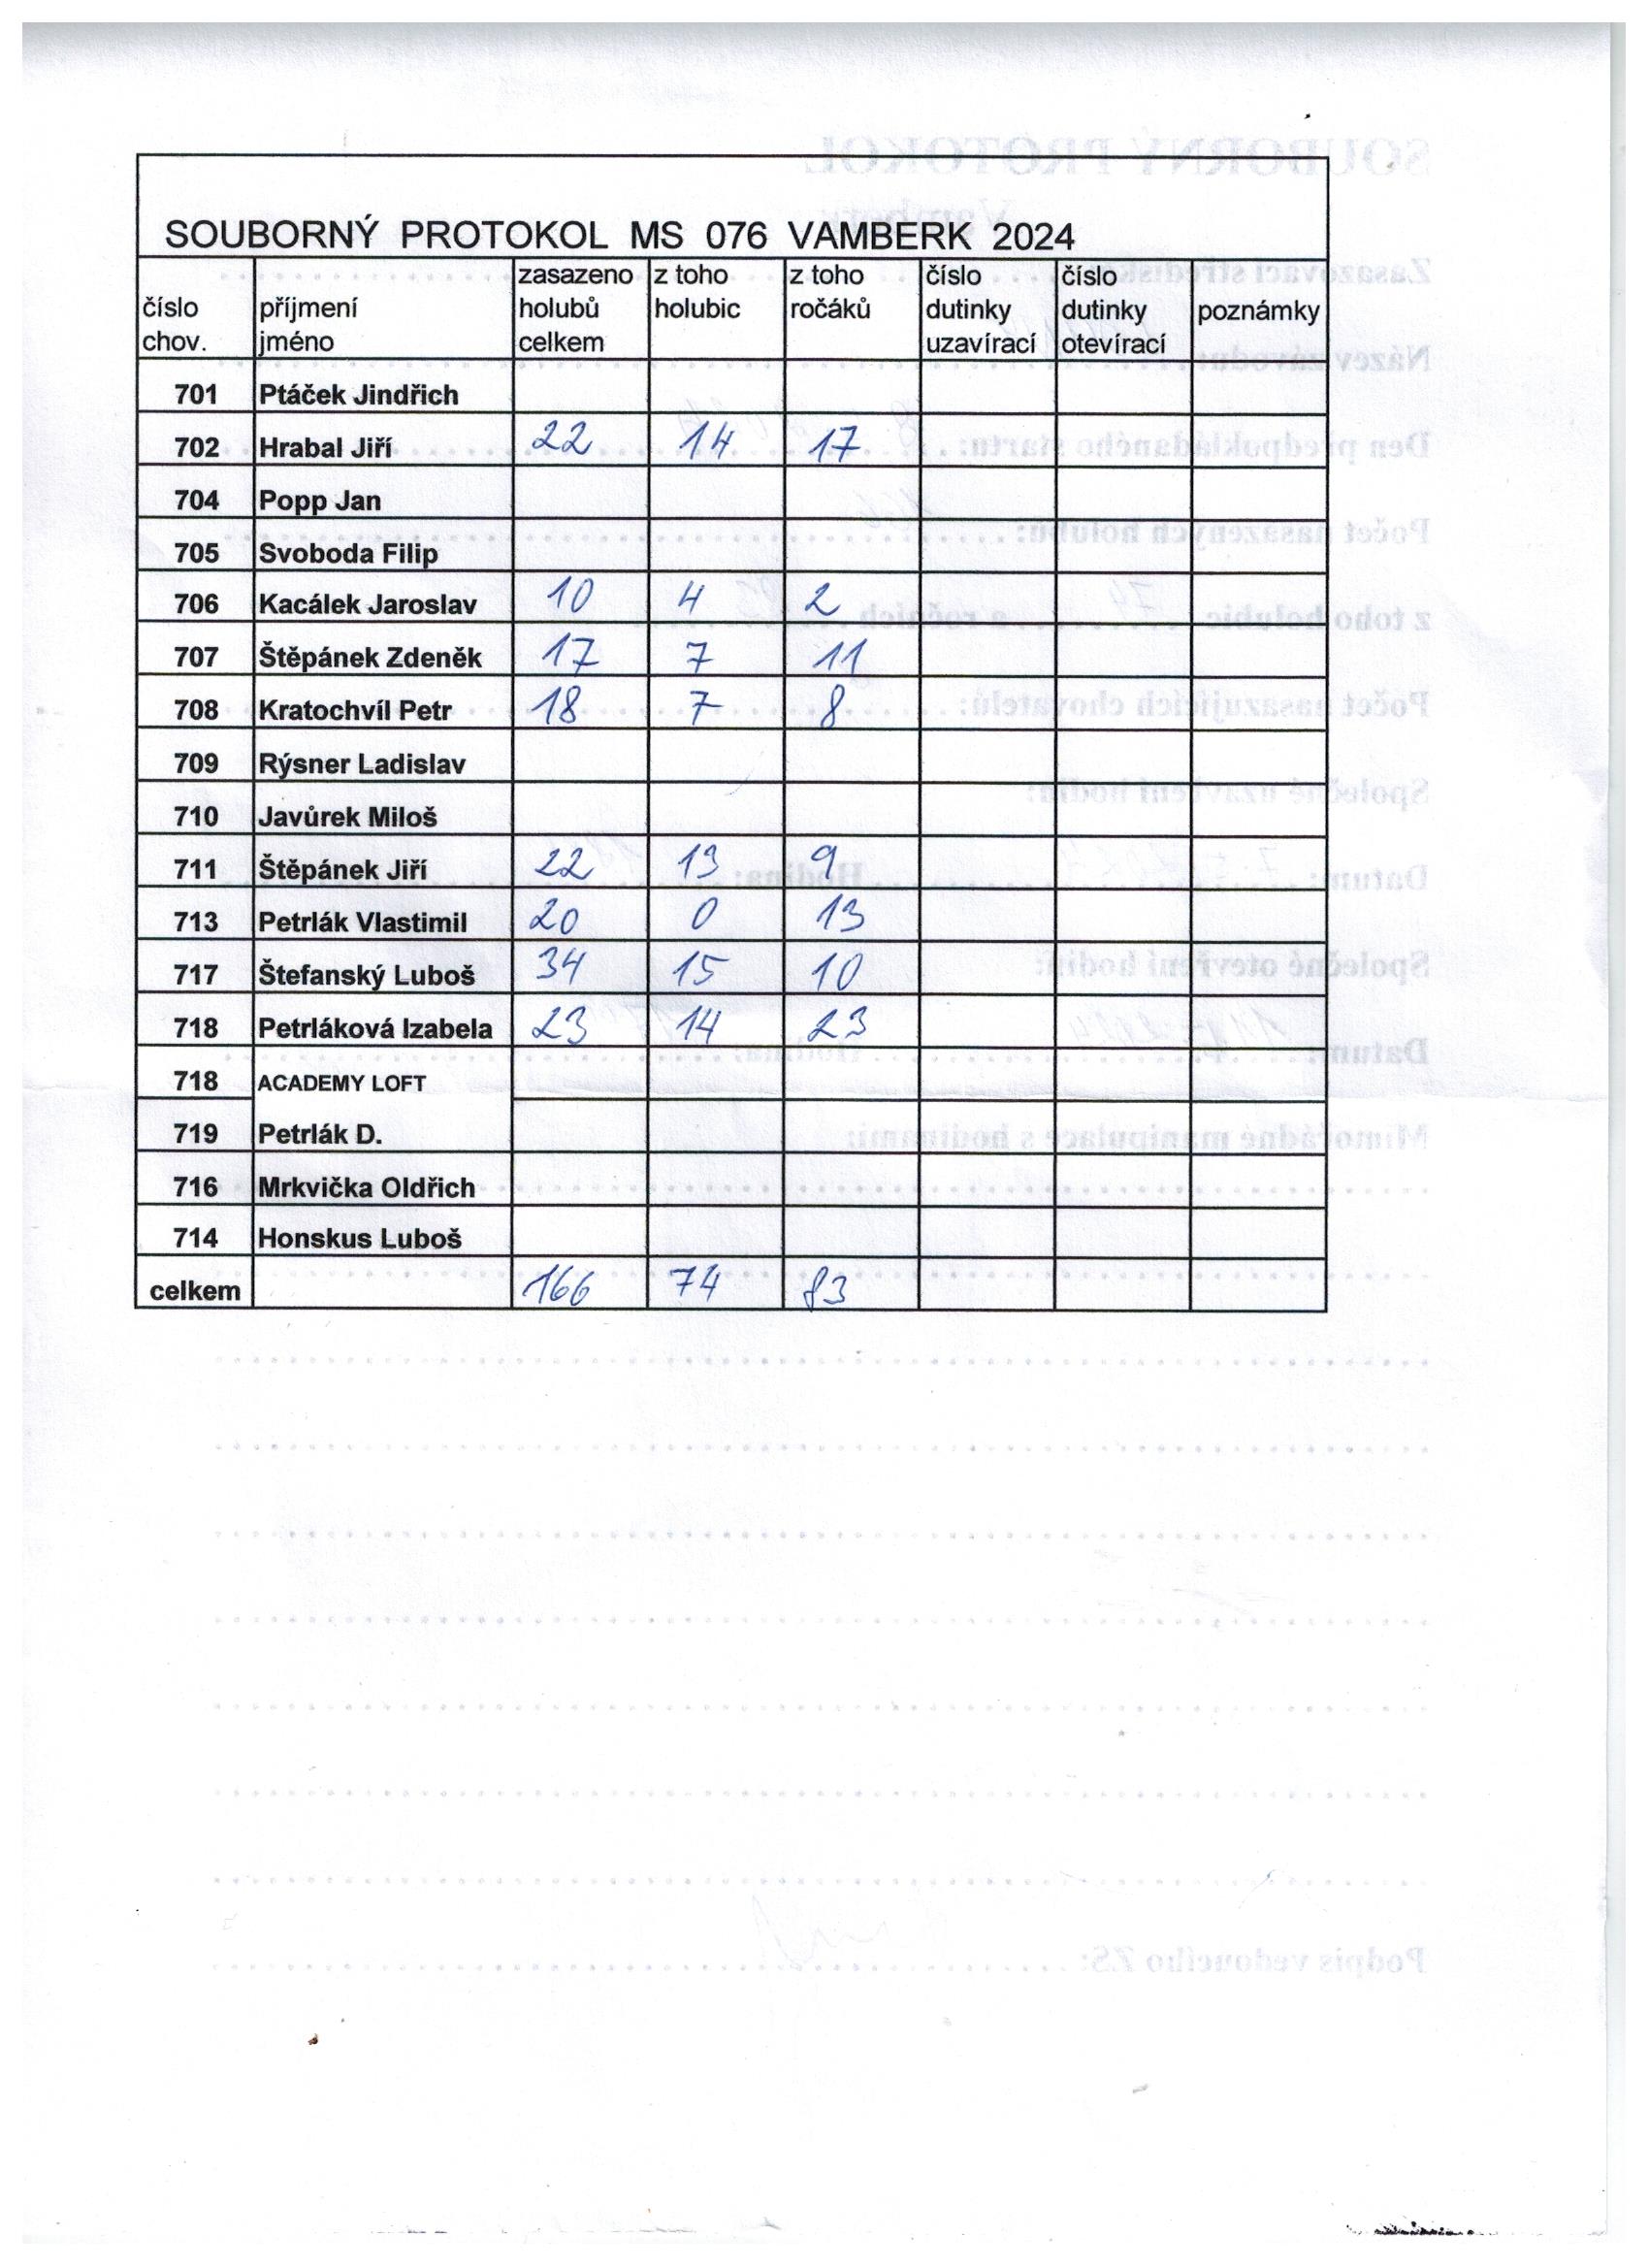 SOUBORNÝ PROTOKOL MS 076 VAMBERK 2024
číslo chov. příjmení jméno zasazeno holubů celkem z toho holubic z toho ročáků číslo dutinky uzavírací číslo dutinky otevírací poznámky
701 Ptáček Jindřich
702 Hrabal Jiří 22 14 17
704 Popp Jan
705 Svoboda Filip
706 Kacálek Jaroslav 10 4 2
707 Štěpánek Zdeněk 17 7 11
708 Kratochvíl Petr 18 7 8
709 Rýsner Ladislav
710 Javůrek Miloš
711 Štěpánek Jiří 22 13 9
713 Petrlák Vlastimil 20 0 13
717 Štefanský Luboš 34 15 10
718 Petrláková Izabela 23 14 23
718 ACADEMY LOFT
719 Petrlák D.
716 Mrkvička Oldřich
714 Honskus Luboš
celkem 166 74 83